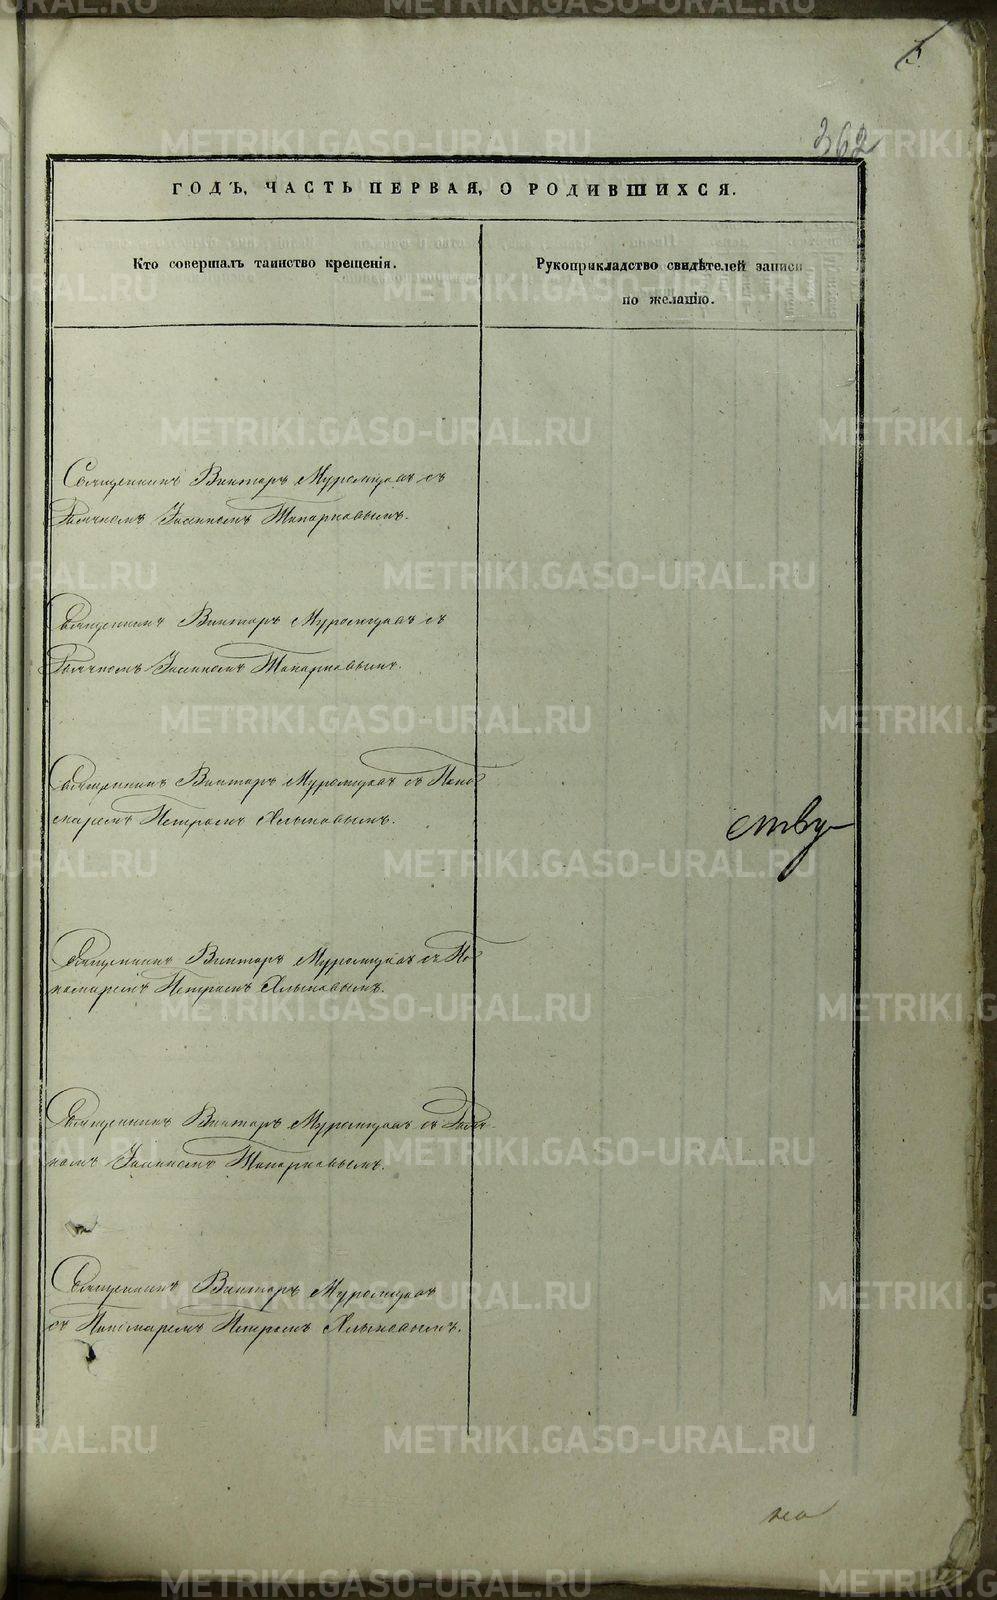 362
ГОДЪ, ЧАСТЬ ПЕРВАЯ, О РОДИВШИХСЯ.
Кто совершалъ таинство крещенія.
Рукоприкладство свидѣтелей записи
по желанію.
Священникъ Викторъ Муромцовъ съ
Дьячкомъ Іоанномъ Топорковымъ.
Священникъ Викторъ Муромцовъ съ
Дьячкомъ Іоанномъ Топорковымъ.
Священникъ Викторъ Муромцовъ съ Поно-
маремъ Петромъ Хлыновымъ.
ству-
Священникъ Викторъ Муромцовъ съ По-
номаремъ Петромъ Хлыновымъ.
Священникъ Викторъ Муромцовъ съ Дьяч-
комъ Іоанномъ Топорковымъ.
Священникъ Викторъ Муромцовъ
съ Пономаремъ Петромъ Хлыновымъ.
METRIKI.GASO-URAL.RU